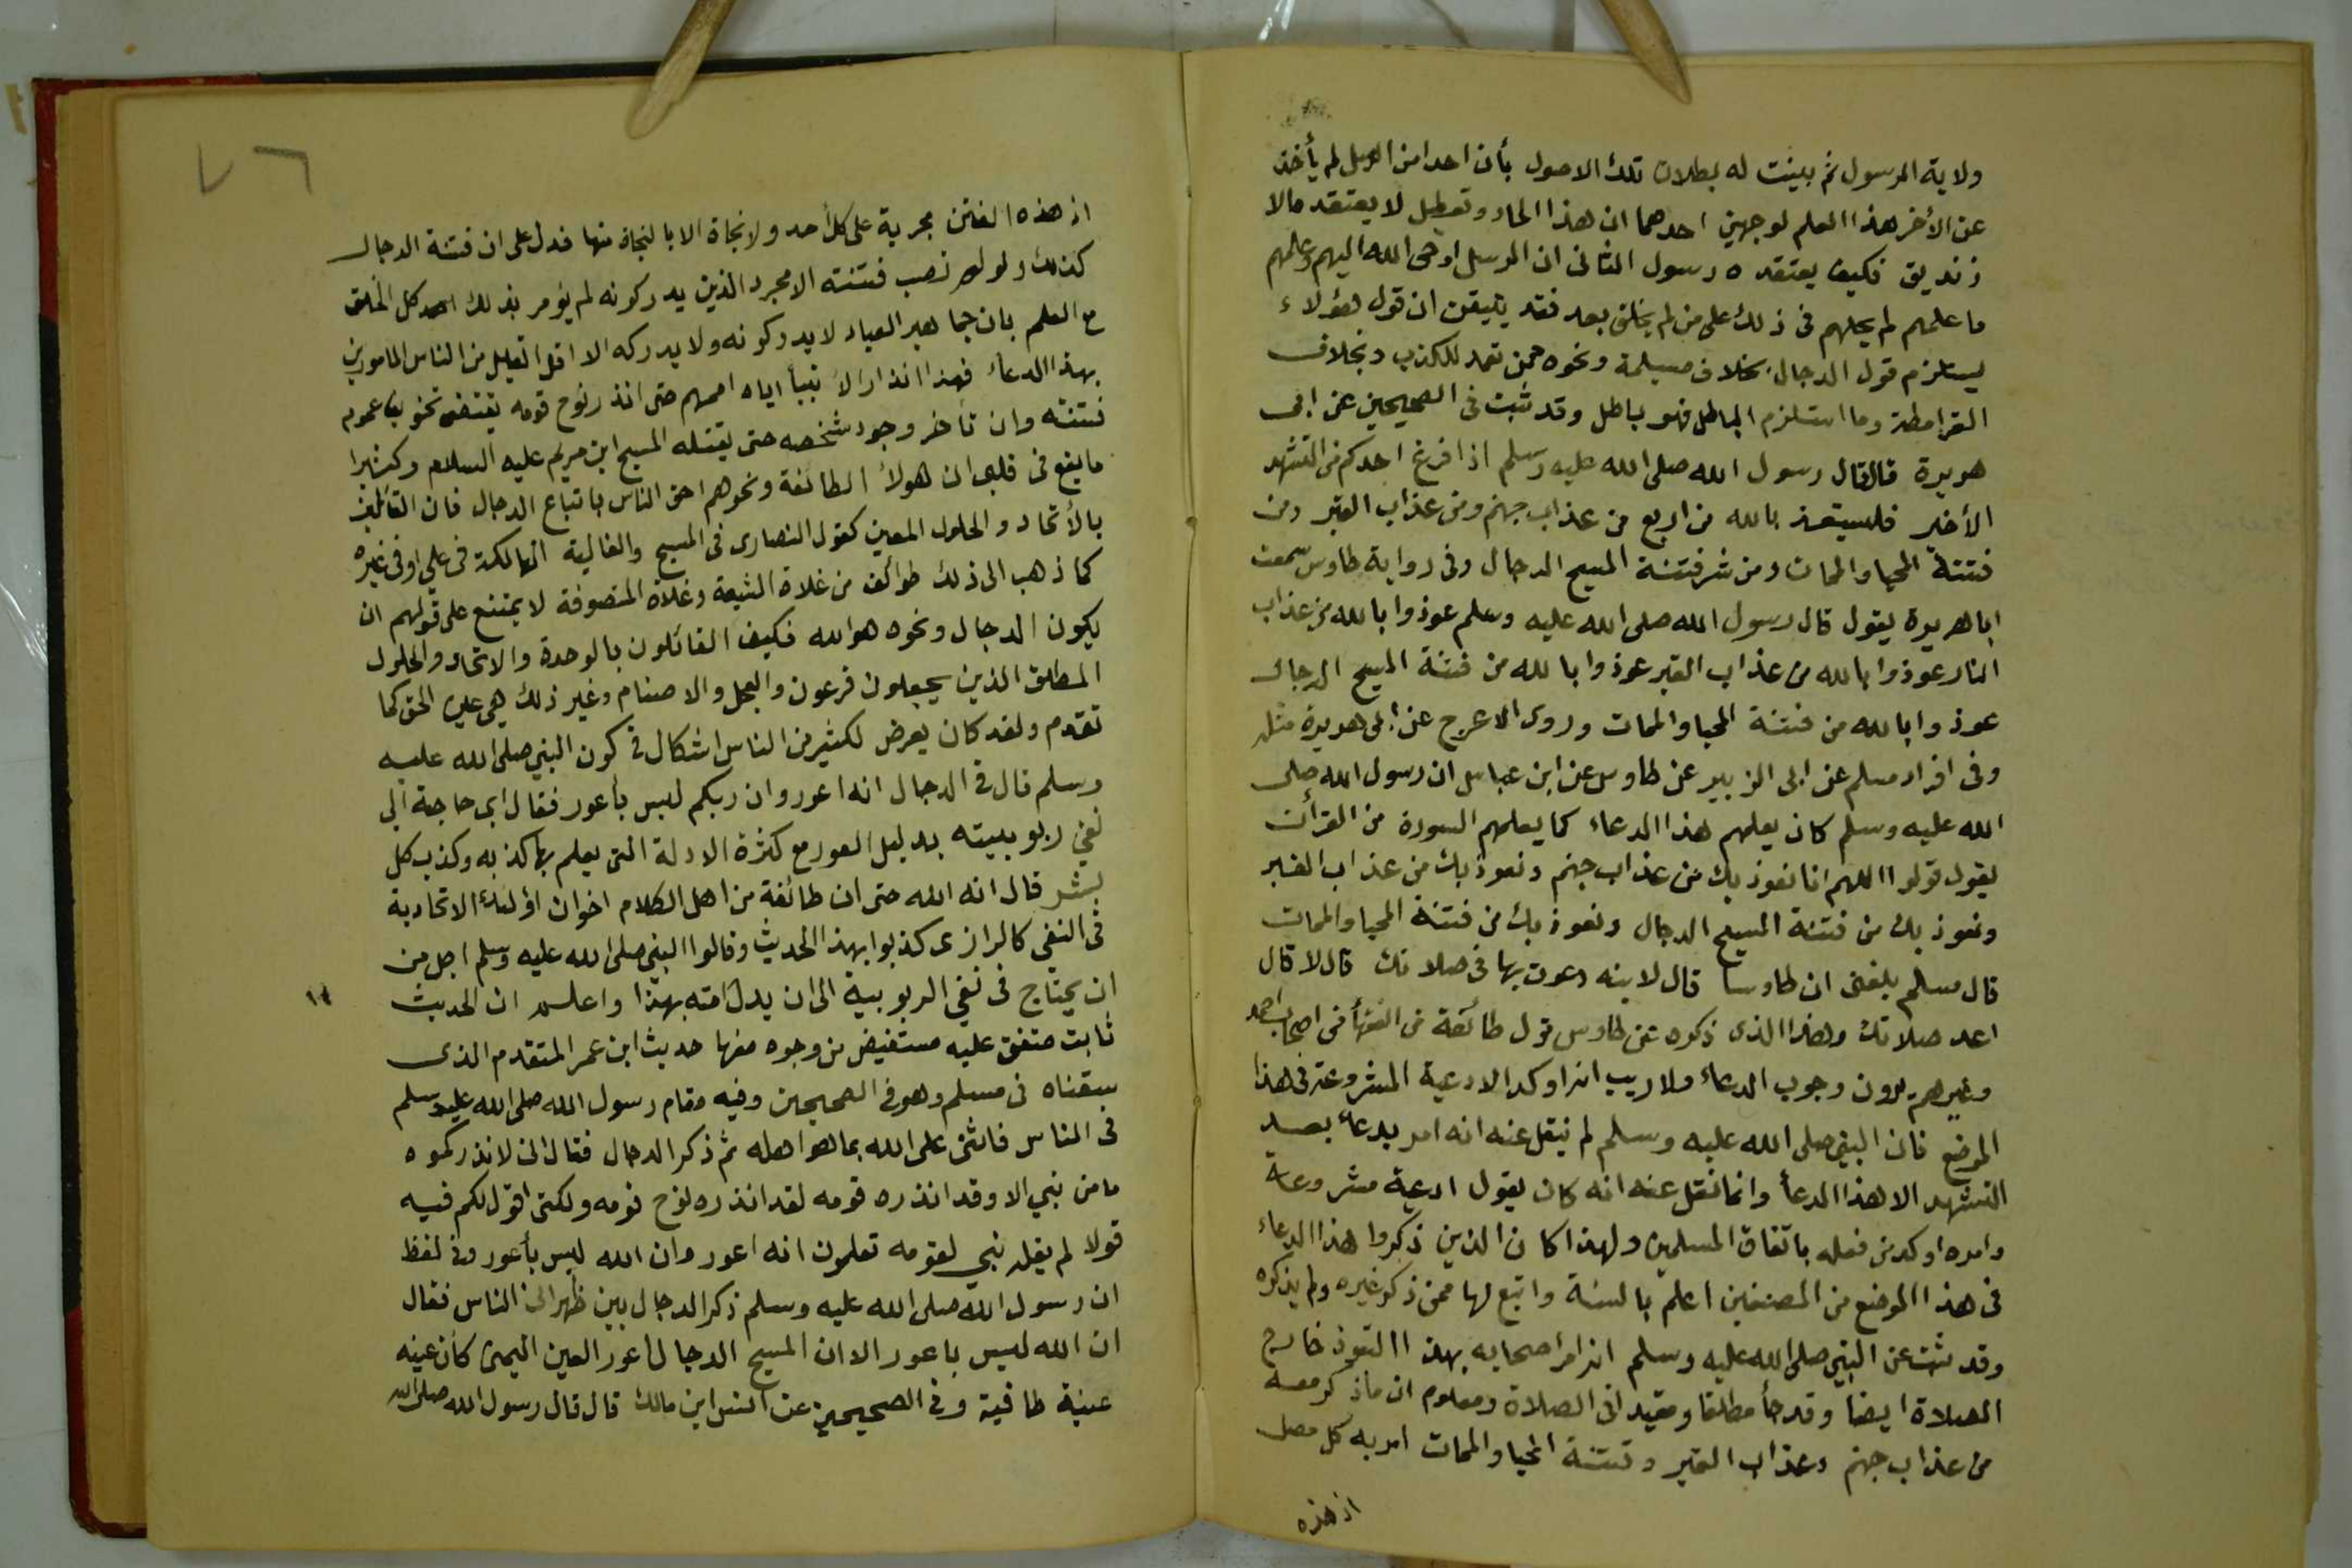 ولاية الرسول ثم بينت له بطلان تلك الاصول بأن احدا من الرسل لم يأخذ
عن الأخر هذا العلم لوجهين احدهما ان هذا الحاد وتعطيل لا يعتقد مالا
زنديق فكيف يعتقده رسول الثانى ان الرسل اوحى الله اليهم وعلمهم
ما علمهم لم يحلهم فى ذلك على من لم يخلق بعد فقد يتيقن ان قول هؤلاء
يستلزم قول الدجال بخلاف مسيلمة ونحوه ممن تعمد للكذب وبخلاف
القرامطة وما استلزم الباطل فهو باطل وقد ثبت فى الصحيحين عن ابى
هريرة قال قال رسول الله صلى الله عليه وسلم اذا فرغ احدكم من التشهد
الأخير فليستعذ بالله من اربع من عذاب جهنم ومن عذاب القبر ومن
فتنة المحيا والممات ومن شر فتنة المسيح الدجال وفى رواية طاوس سمعت
ابا هريرة يقول قال رسول الله صلى الله عليه وسلم عوذوا بالله من عذاب
النار عوذوا بالله من عذاب القبر عوذوا بالله من فتنة المسيح الدجال
عوذوا بالله من فتنة المحيا والممات وروى الاعرج عن ابى هريرة مثله
وفى افراد مسلم عن ابى الزبير عن طاوس عن ابن عباس ان رسول الله صلى
الله عليه وسلم كان يعلمهم هذا الدعاء كما يعلمهم السورة من القرأن
يقول قولوا اللهم انا نعوذ بك من عذاب جهنم ونعوذ بك من عذاب القبر
ونعوذ بك من فتنة المسيح الدجال ونعوذ بك من فتنة المحيا والممات
قال مسلم بلغنى ان طاوسا قال لابنه دعوت بها فى صلاتك قال لا قال
اعد صلاتك وهذا الذى ذكره عن طاوس قول طائفة من الفقهأ من اصحاب احمد
وغيرهم يرون وجوب الدعاء ولا ريب انه اوكد الادعية المشروعة فى هذا
الموضع فان النبي صلى الله عليه وسلم لم ينقل عنه انه امر بدعاء بعد
التشهد الا هذا الدعأ وانما نقل عنه انه كان يقول ادعية مشروعة
وامره اوكد من فعله باتفاق المسلمين ولهذا كان الذين ذكروا هذا الدعاء
فى هذا الموضع من المصنفين اعلم بالسنة واتبع لها ممن ذكر غيره ولم يذكره
وقد ثبت عن النبي صلى الله عليه وسلم انه امر اصحابه بهذا التعوذ خارج
الصلاة ايضا وقد جأ مطلقا ومقيدا فى الصلاة ومعلوم ان ما ذكر معه
من عذاب جهنم وعذاب القبر وفتنة المحيا والممات امر به كل مصل
اذ هذه
٧٦
اذ هذه الفتن مجرية على كل أحد ولا نجاة الا بالنجاة منها فدل على ان فتنة الدجال
كذلك ولو لم تصب فتنته الا مجرد الذين يدركونه لم يؤمر بذلك كل الخلق
مع العلم بان جماهير العباد لا يدركونه ولا يدركه الا اقل القليل من الناس المأمورين
بهذا الدعاء فهذا انذار الانبيأ اياه اممهم حتى انذر نوح قومه يقتضى تخويف عموم
فتنته وان تأخر وجود شخصه حتى يقتله المسيح ابن مريم عليه السلام وكثيرا
ما يقع فى قلبى ان هولأ الطائفة ونحوهم احق الناس باتباع الدجال فان القائلين
بالأتحاد والحلول المعين كقول النصارى فى المسيح والغالية الهالكة فى علي او فى غيره
كما ذهب الى ذلك طوائف من غلاة الشيعة وغلاة المتصوفة لا يمتنع على قولهم ان
يكون الدجال ونحوه هو الله فكيف القائلون بالوحدة والاتحاد والحلول
المطلق الذين يجعلون فرعون والعجل والاصنام وغير ذلك هي عين الحق كما
تقدم ولقد كان يعرض لكثير من الناس اشكال في كون النبي صلى الله عليه
وسلم قال في الدجال انه اعور وان ربكم ليس بأعور فقال اي حاجة الى
نفي ربوبيته بدليل العور مع كثرة الادلة التى يعلم بها كذبه وكذب كل
بشر قال انه الله حتى ان طائفة من اهل الكلام اخوان اولئك الاتحادية
فى النفي كالرازى كذبوا بهذا الحديث وقالوا النبي صلى الله عليه وسلم اجل من
ان يحتاج فى نفي الربوبية الى ان يدل امته بهذا واعلم ان الحديث
ثابت متفق عليه مستفيض من وجوه منها حديث ابن عمر المتقدم الذى
سقناه فى مسلم وهو في الصحيحين وفيه فقام رسول الله صلى الله عليه وسلم
فى الناس فاثنى على الله بما هو اهله ثم ذكر الدجال فقال انى لانذركموه
ما من نبي الا وقد انذره قومه لقد انذره نوح قومه ولكنى اقول لكم فيه
قولا لم يقله نبي لقومه تعلمون انه اعور وان الله ليس بأعور وفى لفظ
ان رسول الله صلى الله عليه وسلم ذكر الدجال بين ظهرانى الناس فقال
ان الله ليس باعور الا ان المسيح الدجال اعور العين اليمنى كأن عينه
عنبة طافية وفي الصحيحين عن انس ابن مالك قال قال رسول الله صلى الله